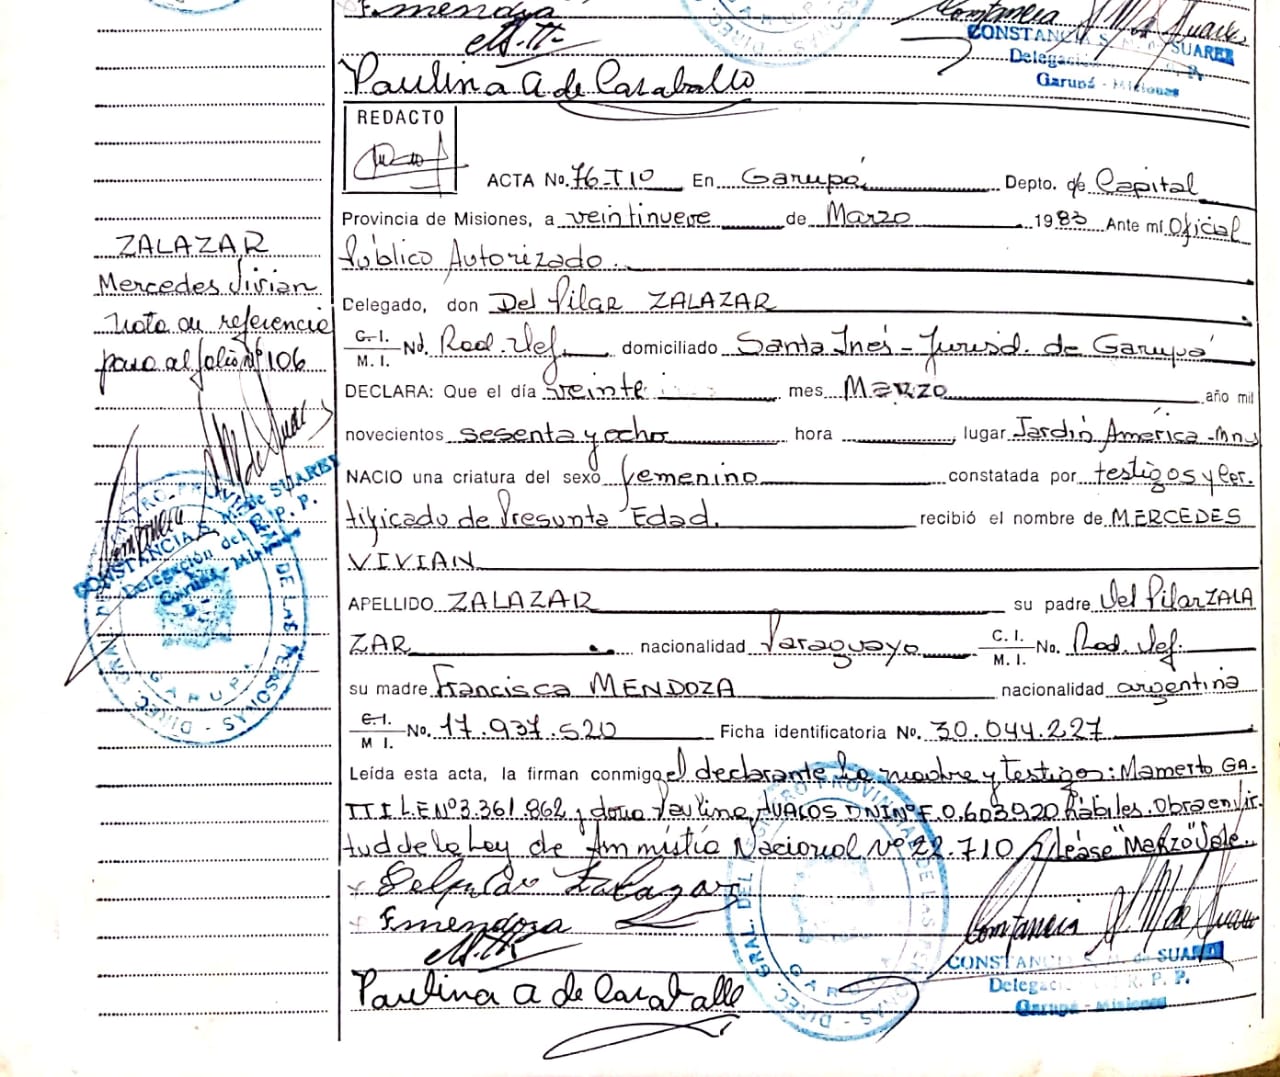 Emendoza
CONSTANCIA S. M. de SUAREZ
Delegación del R. P. P.
Garupá - Misiones
Paulina A de Caraballo
REDACTO
ACTA No. 76-Tº1º En Garupá Depto. de Capital
Provincia de Misiones, a veintinueve de Marzo 1983 Ante mí Oficial
Público Autorizado.
Delegado, don Del Pilar ZALAZAR
C. I. M. I. No. Rad. Def. domiciliado Santa Inés - Jurisd. de Garupá
DECLARA: Que el día veinte mes MARZO año mil
novecientos sesenta y ocho hora lugar Jardín América - Mnes
NACIO una criatura del sexo femenino constatada por testigos y Cer.
tificado de Presunta Edad. recibió el nombre de MERCEDES
VIVIAN
APELLIDO ZALAZAR su padre Del Pilar ZALA
ZAR nacionalidad Paraguayo C. I. M. I. No. Rad. Def.
su madre Francisca MENDOZA nacionalidad argentina
C. I. M I. No. 17.937.520 Ficha identificatoria No. 30.044.227
Leída esta acta, la firman conmigo el declarante la madre y testigos: Mamerto GA.
TTI L.E Nº 3.361.862 y doña Paulina AVALOS DNI Nº F.0.603.920 hábiles. Obra en vir.
tud de la Ley de Amnistía Nacional Nº 22.710 Léase "Marzo" Vale.
Zalazar
Emendoza
Paulina A de Caraballo
Constancia S. M. de Suarez
CONSTANCIA S. M. de SUAREZ
Delegación del R. P. P.
Garupá - Misiones
DIREC. GRAL. DEL REGISTRO PROVINCIAL DE LAS PERSONAS
GARUPA
ZALAZAR
Mercedes Vivian
Nota de referencia
pasa al folio Nº 106
CONSTANCIA S. M. de SUAREZ
Delegación del R. P. P.
Garupá - Misiones
DIREC. GRAL. DEL REGISTRO PROVINCIAL DE LAS PERSONAS
GARUPA